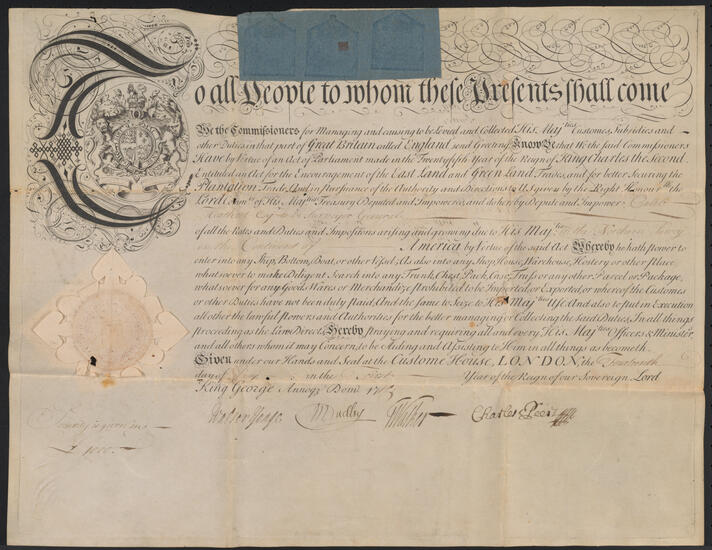 To all People to whom these Presents shall come
We the Commissioners for Managing and causing to be Levied and Collected His Maj.ties Customes, Subsidies and
other Duties in that part of Great Britain called England, send Greeting Know Ye that We the said Commissioners
Have by Virtue of an Act of Parliament made in the Twenty fifth Year of the Reign of King Charles the Second,
Entituled an Act for the Encouragement of the East Land and Green Land Trades, and for better Securing the
Plantation Trade, and in Pursuance of the Authority and Directions to Us given by the Right Honou.ble the
Lords Com.rs of His Maj.ties Treasury Deputed and Impowered, and do hereby Depute and Impower Caleb
Heathcote Esq.r to be Surveyor General
of all the Rates and Duties and Impositions arising and growing due to His Maj.tie in the Northern
in the Continent of America by Virtue of the said Act Whereby he hath power to
enter into any Ship, Bottom, Boat, or other Vessel, As also into any Shop, House, Warehouse, Hostery or other Place,
whatsoever to make Diligent Search into any Trunk, Chest, Pack, Case, Truss or any other Parcel or Package,
whatsoever for any Goods, Wares or Merchandize prohibited to be Imported or Exported, or whereof the Customes
or other Duties have not been duly paid, And the same to Seize to His Maj.ties Use, And also to put in Execution
all other the lawful powers and Authorities for the better managing & Collecting the said Duties, In all things
proceeding as the Law Directs Hereby praying and requiring all and every His Maj.ties Officers & Ministers
and all others whom it may Concern, to be Aiding and Assisting to Him in all things as becometh.
Given under our Hands and Seal at the Custome House, LONDON, the
day of in the First Year of the Reign of our Sovereign Lord
King George Annoq; Dom: 171
MDudley Charles Peers
Security is given in
£